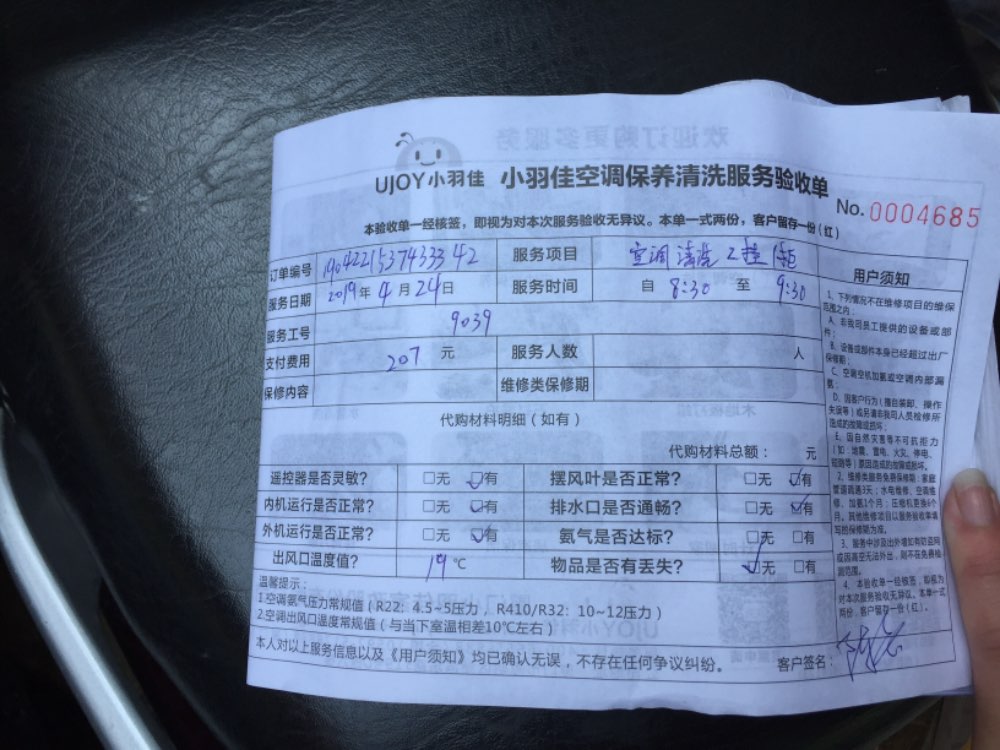 欢迎订购更多服务
UJOY小羽佳 小羽佳空调保养清洗服务验收单
No. 0004685
本验收单一经核签，即视为对本次服务验收无异议。本单一式两份，客户留存一份（红）
订单编号 服务项目 空调清洗2挂1柜
服务日期 2019年4月24日 服务时间 自 8:30 至 9:30
服务工号 9039
支付费用 207 元 服务人数 人
保修内容 维修类保修期
代购材料明细（如有）
代购材料总额： 元
遥控器是否灵敏? □无 ☑有 摆风叶是否正常? □无 ☑有
内机运行是否正常? □无 ☑有 排水口是否通畅? □无 ☑有
外机运行是否正常? □无 ☑有 氨气是否达标? □无 □有
出风口温度值? 19 ℃ 物品是否有丢失? ☑无 □有
温馨提示：
1.空调氨气压力常规值（R22：4.5~5压力，R410/R32：10~12压力）
2.空调出风口温度常规值（与当下室温相差10℃左右）
本人对以上服务信息以及《用户须知》均已确认无误，不存在任何争议纠纷。 客户签名：
用户须知
1、下列情况不在维修项目的维保
范围之内：
A、非我司员工提供的设备或部
件；
B、设备或部件本身已经超过出厂
保修期；
C、空调空机加氨或空调内部漏
氨；
D、因客户行为（擅自装卸、操作
失误等）或另请非我司人员检修所
造成的故障或损坏；
E、因自然灾害等不可抗拒力
（如：地震、雷电、火灾、停电、
超跑等）原因造成的故障或损坏。
2、维修类服务免费保修期：家庭
管道疏通3天；水电维修、空调维
修、加氨1个月；压缩机更换6个
月。其他维修项目以服务验收单填
写担保修期为准。
3、服务中涉及出外墙如有防盗网
或因高空无法外出，则不在免费检
测范围。
4、本验收单一经核签，即视为
对本次服务验收无异议。本单一式
两份，客户留存一份（红）。